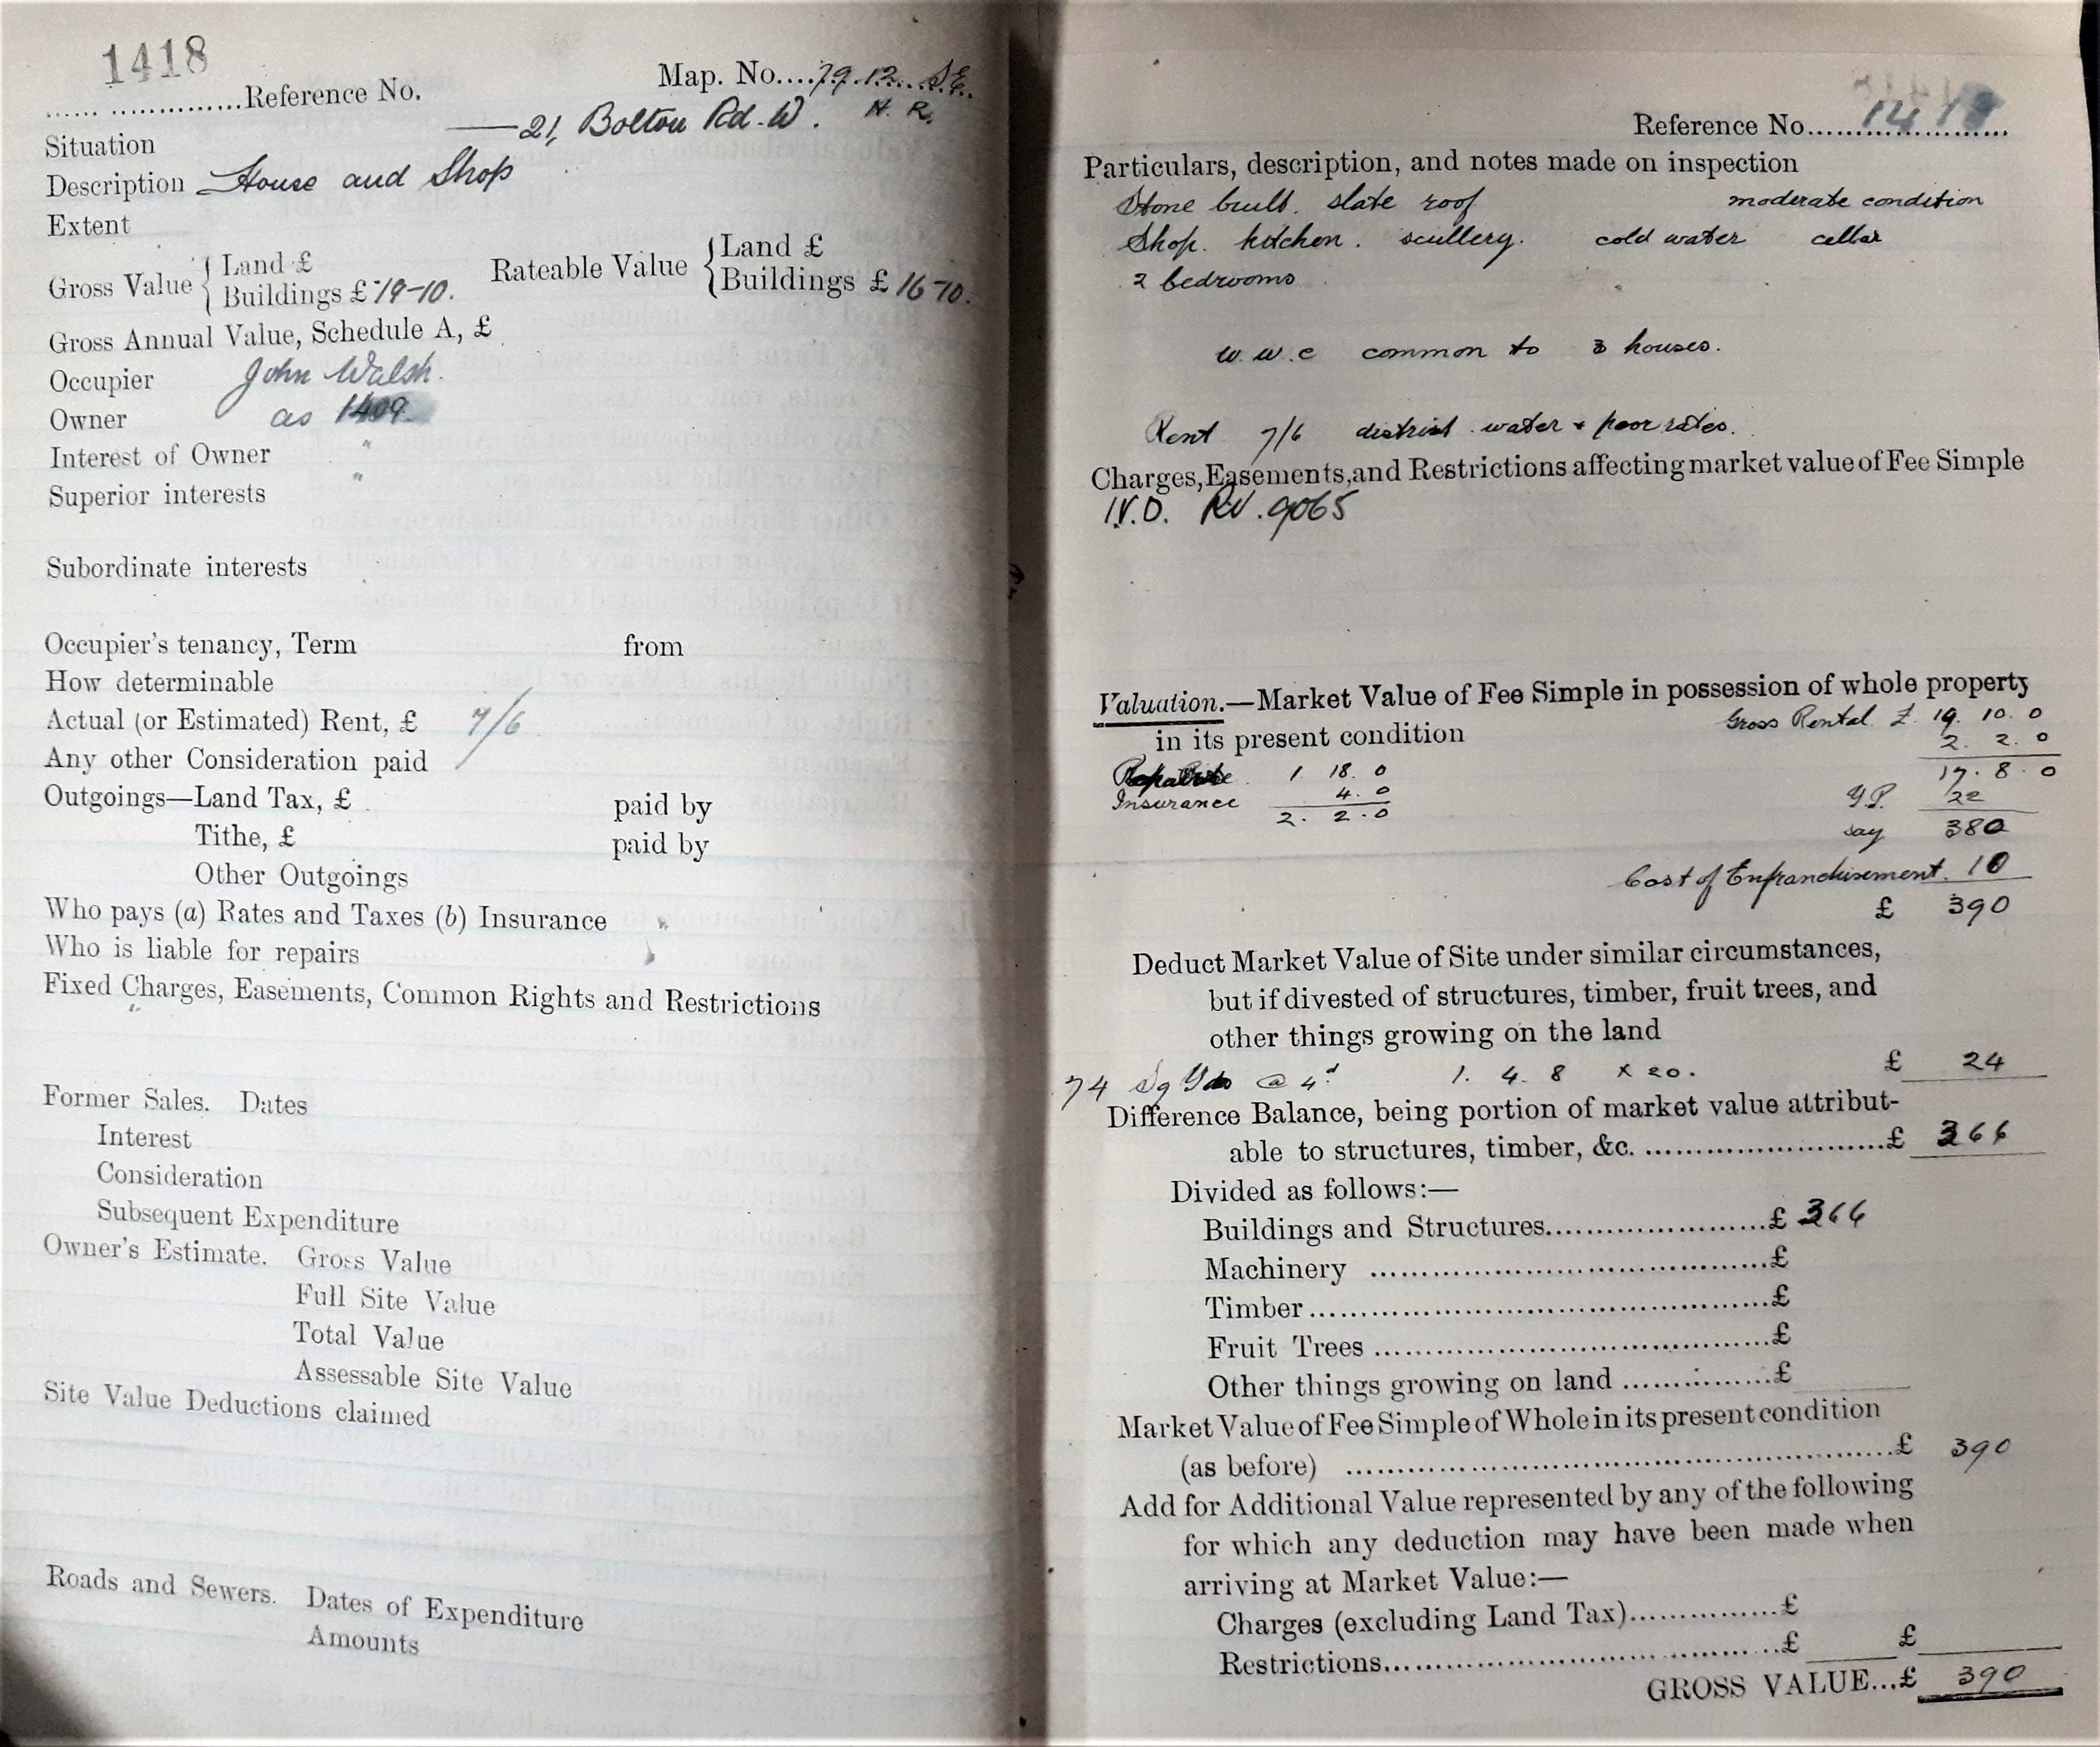 1418
Reference No. Map. No....79.12. S.E.
Situation 21, Bolton Rd. W. H. R.
Description House and Shop
Extent
Gross Value { Land £
Buildings £ 19-10.
Rateable Value { Land £
Buildings £ 16-10.
Gross Annual Value, Schedule A, £
Occupier John Walsh.
Owner as 1409
Interest of Owner "
Superior interests "
Subordinate interests
Occupier's tenancy, Term from
How determinable
Actual (or Estimated) Rent, £ 7/6
Any other Consideration paid
Outgoings—Land Tax, £ paid by
Tithe, £ paid by
Other Outgoings
Who pays (a) Rates and Taxes (b) Insurance
Who is liable for repairs
Fixed Charges, Easements, Common Rights and Restrictions
Former Sales. Dates
Interest
Consideration
Subsequent Expenditure
Owner's Estimate. Gross Value
Full Site Value
Total Value
Assessable Site Value
Site Value Deductions claimed
Roads and Sewers. Dates of Expenditure
Amounts
Reference No. 1418
Particulars, description, and notes made on inspection
Stone built. slate roof moderate condition
Shop. kitchen. scullery. cold water cellar
2 bedrooms
w.w.c common to 3 houses.
Rent 7/6 district water + poor rates.
Charges, Easements, and Restrictions affecting market value of Fee Simple
I.V.D. RV. 9065
Valuation.—Market Value of Fee Simple in possession of whole property
in its present condition
Gross Rental £ 19. 10. 0
2. 2. 0
17. 8. 0
Repairs 1. 18. 0
Insurance 4. 0
2. 2. 0
Y.P. 22
say 380
Cost of Enfranchisement. 10
£ 390
Deduct Market Value of Site under similar circumstances,
but if divested of structures, timber, fruit trees, and
other things growing on the land
74 Sq Yds @ 4d 1. 4. 8 x 20. £ 24
Difference Balance, being portion of market value attribut-
able to structures, timber, &c. £ 366
Divided as follows:—
Buildings and Structures £ 366
Machinery £
Timber £
Fruit Trees £
Other things growing on land £
Market Value of Fee Simple of Whole in its present condition
(as before) £ 390
Add for Additional Value represented by any of the following
for which any deduction may have been made when
arriving at Market Value:—
Charges (excluding Land Tax) £
Restrictions £ £
GROSS VALUE...£ 390